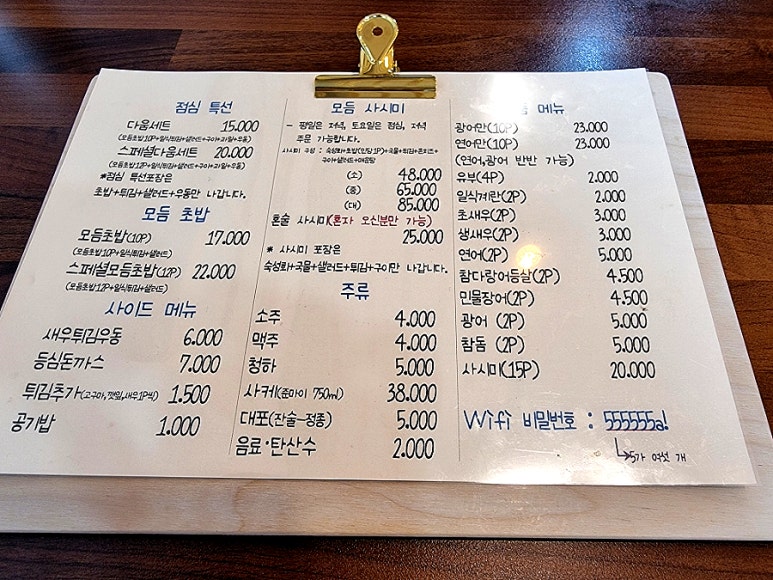 점심 특선
다움세트 15.000
(모듬초밥10P+일식튀김+샐러드+구이+과일+우동)
스페셜다움세트 20.000
(모듬초밥12P+일식튀김+샐러드+구이+과일+우동)
*점심 특선포장은
초밥+튀김+샐러드+우동만 나갑니다.
모듬 초밥
모듬초밥(10P) 17.000
(모듬초밥10P+일식튀김+샐러드)
스페셜모듬초밥(12P) 22.000
(모듬초밥12P+일식튀김+샐러드)
사이드 메뉴
새우튀김우동 6.000
등심돈까스 7.000
튀김추가(고구마,깻잎,새우1P씩) 1.500
공기밥 1.000
모듬 사시미
- 평일은 저녁, 토요일은 점심, 저녁
주문 가능합니다.
사시미 구성 : 숙성회+초밥(인당1P)+국물+튀김+콘치즈+
구이+샐러드+매운탕
(소) 48.000
(중) 65.000
(대) 85.000
혼술 사시미(혼자 오신분만 가능)
25.000
* 사시미 포장은
숙성회+국물+샐러드+튀김+구이만 나갑니다.
주류
소주 4.000
맥주 4.000
청하 5.000
사케(준마이 750ml) 38.000
대포(잔술-정종) 5.000
음료·탄산수 2.000
메뉴
광어만(10P) 23.000
연어만(10P) 23.000
(연어,광어 반반 가능)
유부(4P) 2.000
일식계란(2P) 2.000
초새우(2P) 3.000
생새우(2P) 3.000
연어(2P) 5.000
참다랑어등살(2P) 4.500
민물장어(2P) 4.500
광어 (2P) 5.000
참돔 (2P) 5.000
사시미(15P) 20.000
Wifi 비밀번호 : 555555a!
↳5가 여섯 개